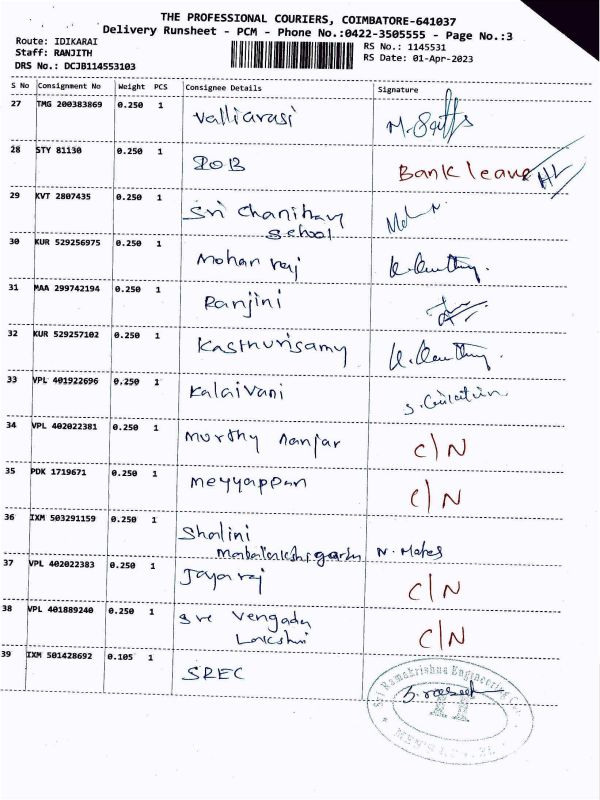 THE PROFESSIONAL COURIERS, COIMBATORE-641037
Delivery Runsheet - PCM - Phone No.:0422-3505555 - Page No.:3
Route: IDIKARAI
Staff: RANJITH
DRS No.: DCJB114553103
RS No.: 1145531
RS Date: 01-Apr-2023
S No Consignment No Weight PCS Consignee Details Signature
27 TMG 200383869 0.250 1 Valliarasi
28 STY 81130 0.250 1 IOB Bank leave
29 KVT 2807435 0.250 1 Sri
School
30 KUR 529256975 0.250 1 Mohan raj
31 MAA 299742194 0.250 1 Ranjini
32 KUR 529257102 0.250 1 Kasthurisamy
33 VPL 401922696 0.250 1 Kalaivani
34 VPL 402022381 0.250 1 Murthy nanjar C/N
35 PDK 1719671 0.250 1 Meyyappan C/N
36 IXM 503291159 0.250 1 Shalini
N. Mahes
37 VPL 402022383 0.250 1 Jayaraj C/N
38 VPL 401889240 0.250 1 Sre Vengada
Lakshmi C/N
39 IXM 501428692 0.105 1 SREC
Sri Ramakrishna Engineering Col
MEN'S HOSTEL